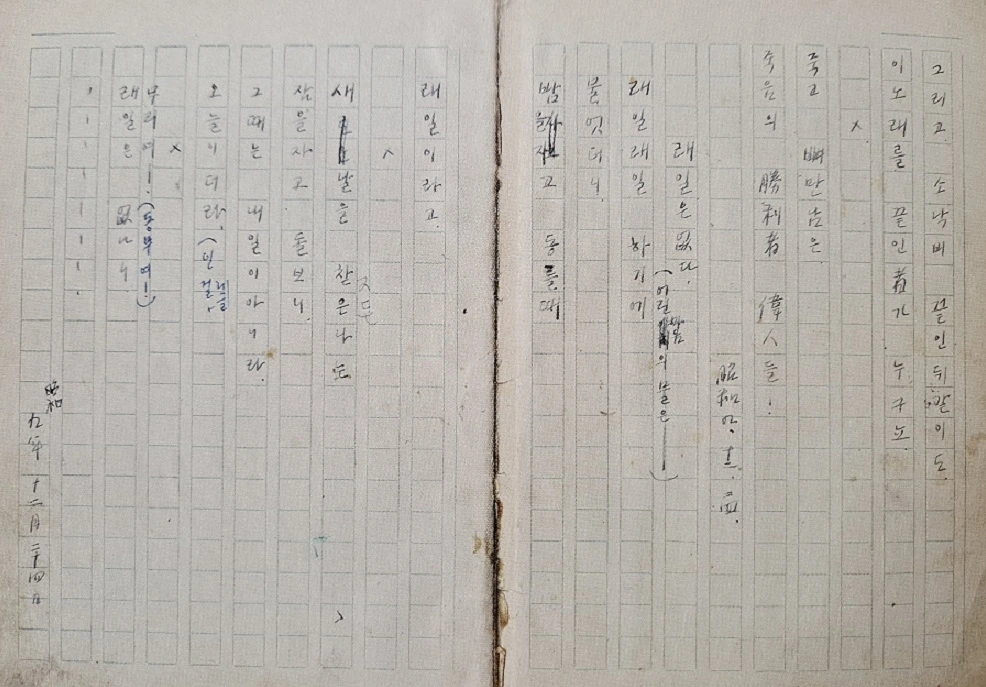 그리고 소낙비 끝인뒤같이도
이노래를 끝인者가 누구뇨.
×
죽고 뼈만남은
죽음의 勝利者 偉人들!
昭和九, 十二, 二四.
래일은 없다
(어린 마음의 물은)
래일래일 하기에
물엇더니
밤을자고 동틀때
래일이라고
×
새날을 찾은나도
잠을자고 돌보니
그때는 내일이아니라
오늘이더라.
×
무리여! (동무여!)
래일은 없나니
昭和九年 十二月 二十四日